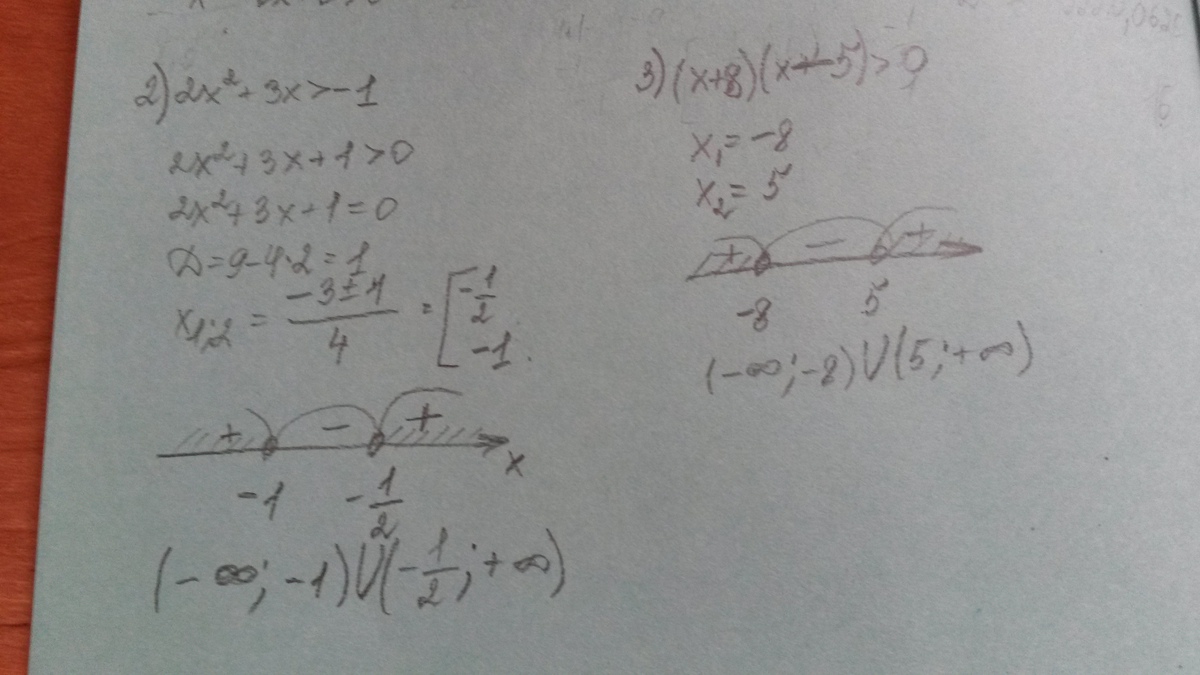 2) 2x² + 3x > -1
2x² + 3x + 1 > 0
2x² + 3x + 1 = 0
D = 9 - 4·2 = 1
x₁;₂ = (-3 ± 1)/4 = [ -1/2; -1.
+ - +
-1 -1/2 x
(-∞; -1) U (-1/2; +∞)
3) (x+8)(x-5) > 0
x₁ = -8
x₂ = 5
+ - +
-8 5
(-∞; -8) U (5; +∞)